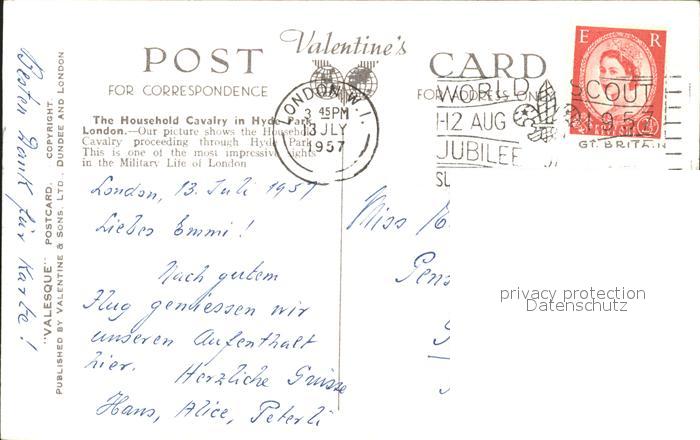 Valentine's
POST CARD
FOR CORRESPONDENCE
FOR ADDRESS ONLY
The Household Cavalry in Hyde Park,
London.—Our picture shows the Household
Cavalry proceeding through Hyde Park.
This is one of the most impressive sights
in the Military Life of London
London, 13. Juli 1957
Liebes Emmi!
Nach gutem
Flug geniessen wir
unseren Aufenthalt
hier. Herzliche Grüsse
Hans, Alice, Peterli
Besten Dank für Karte!
"VALESQUE" POSTCARD. COPYRIGHT.
PUBLISHED BY VALENTINE & SONS, LTD., DUNDEE AND LONDON
LONDON W.1.
3 45PM
13 JLY
1957
WORLD SCOUT
1-12 AUG 1957
JUBILEE
SU
E R
GT. BRITAIN
Miss E
Pens
privacy protection
Datenschutz